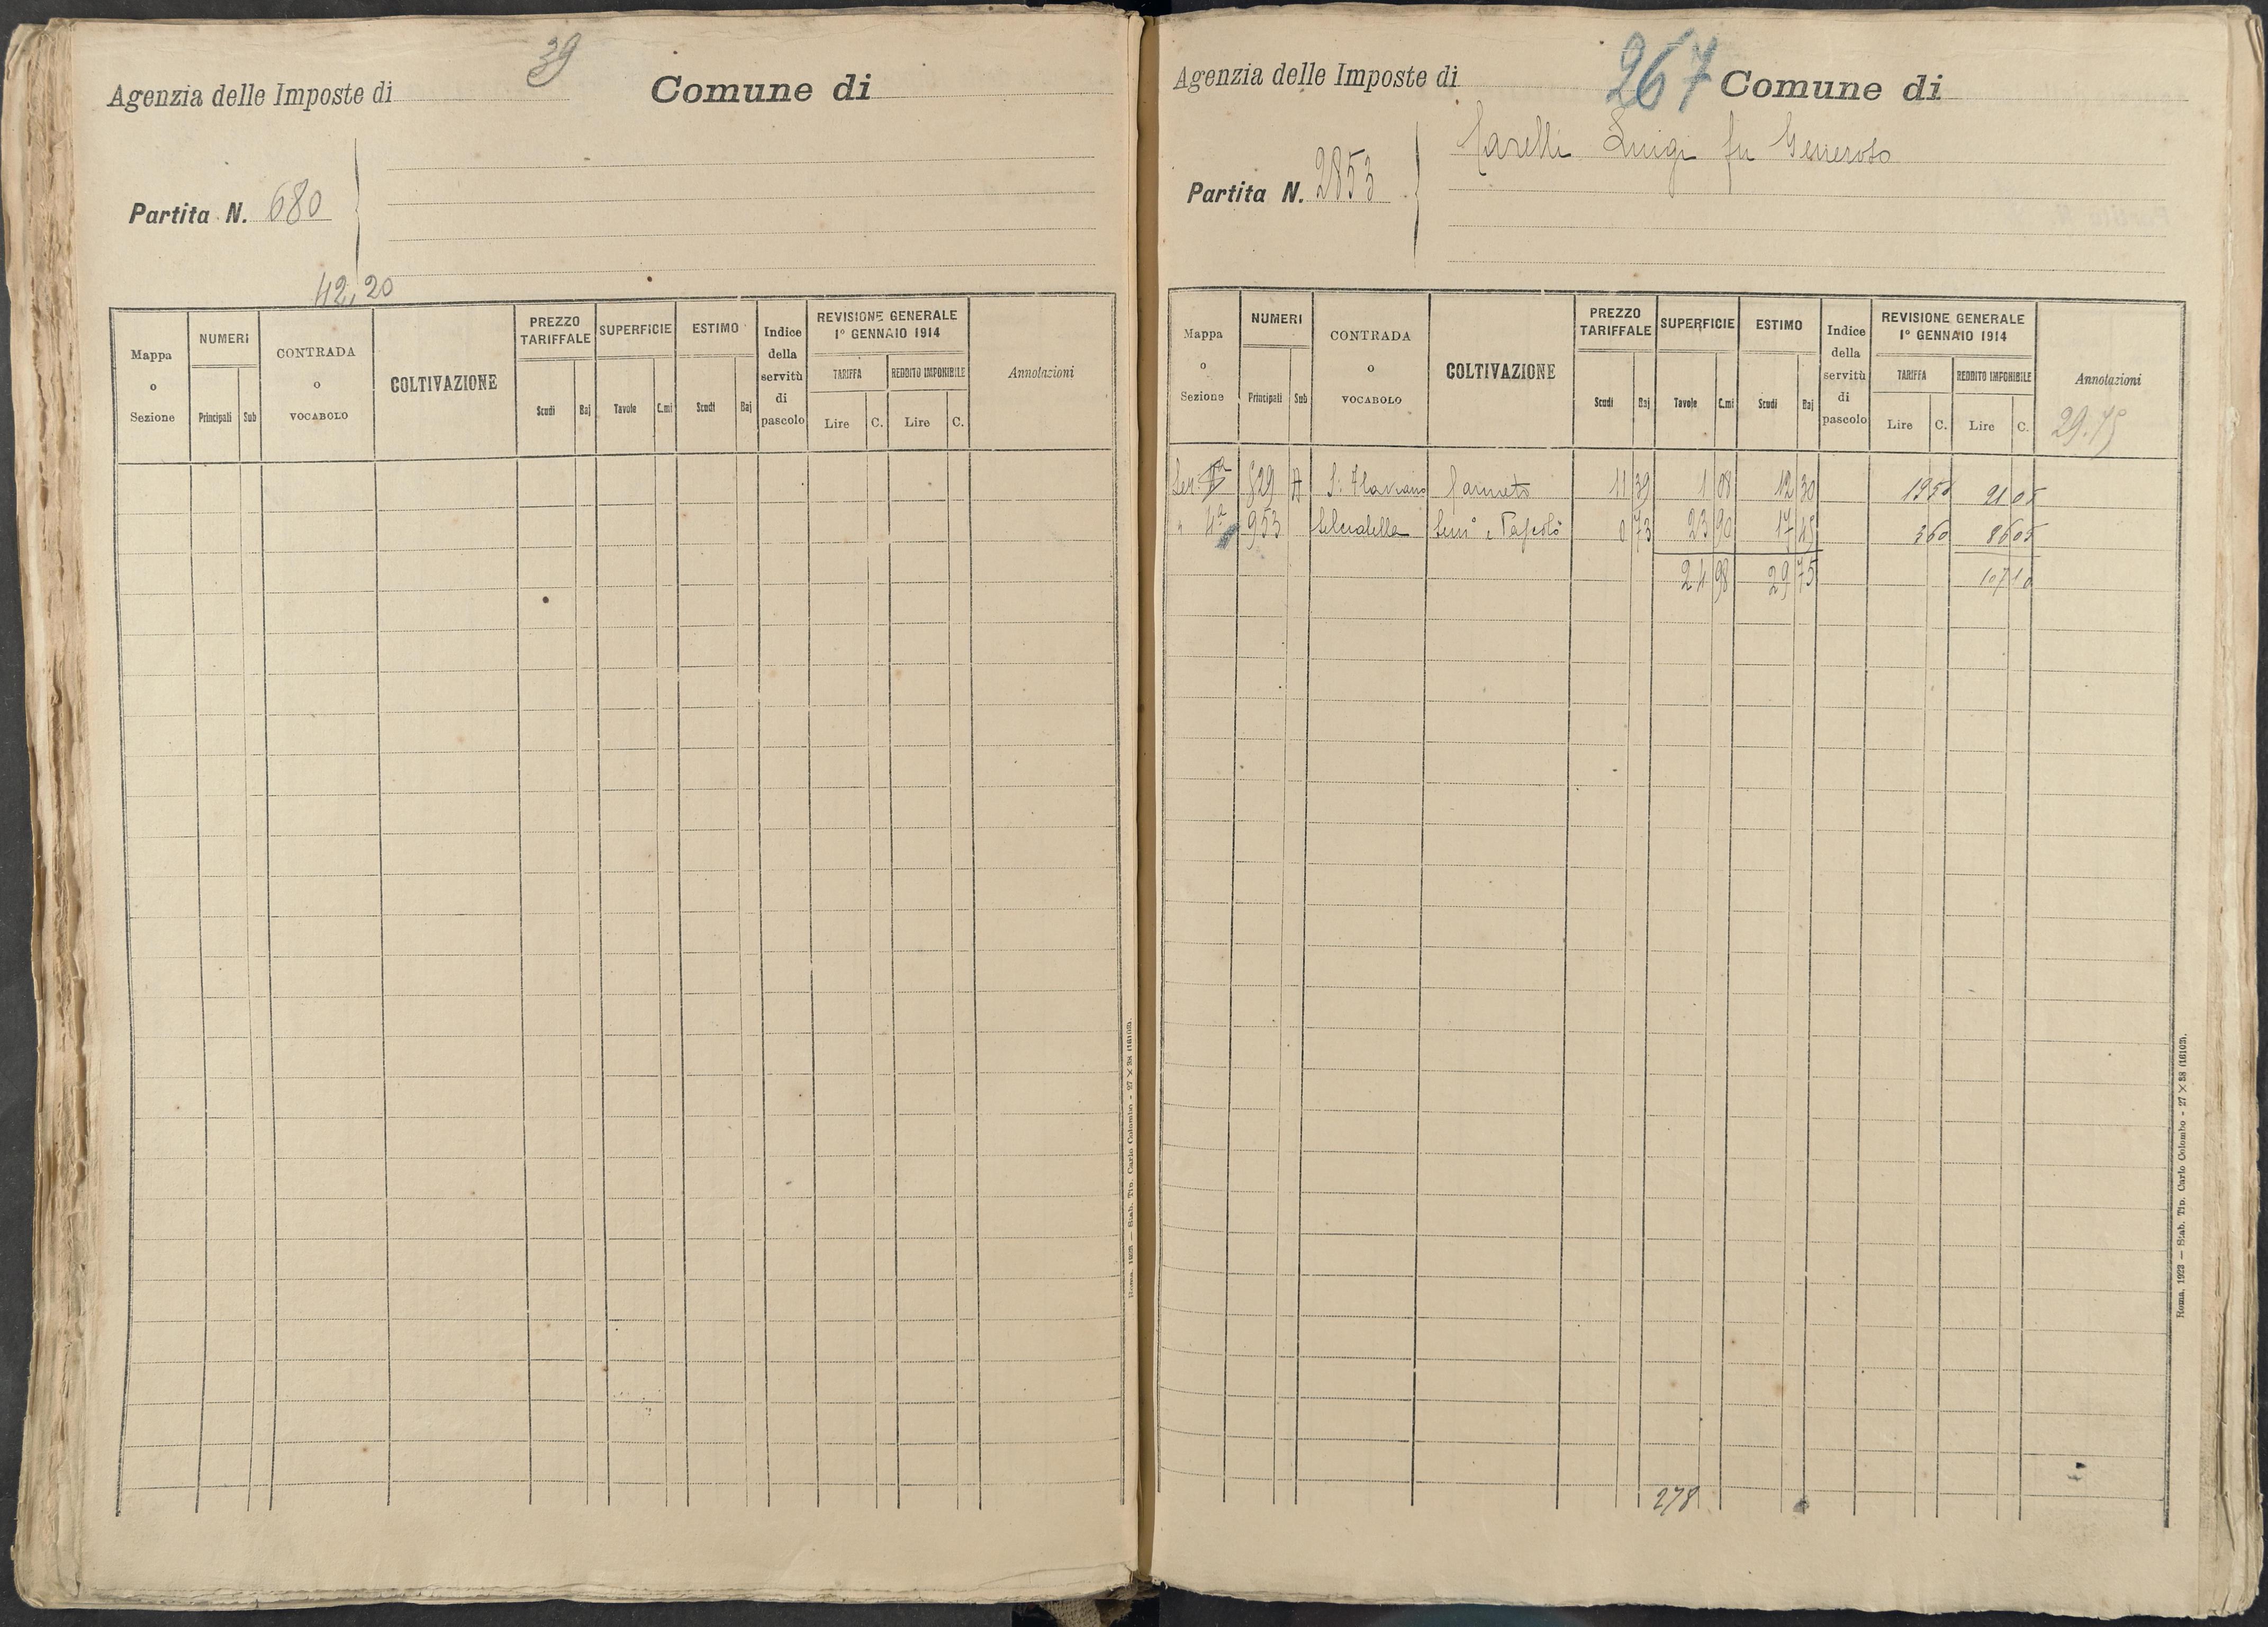 39
Agenzia delle Imposte di
Comune di
Partita N. 680
42,20
Mappa o Sezione
NUMERI
Principali Sub
CONTRADA o VOCABOLO
COLTIVAZIONE
PREZZO TARIFFALE
Scudi Baj
SUPERFICIE
Tavole C.mi
ESTIMO
Scudi Baj
Indice della servitù di pascolo
REVISIONE GENERALE
1° GENNAIO 1914
TARIFFA
REDDITO IMPONIBILE
Lire C. Lire C.
Annotazioni
Roma, 1923 — Stab. Tip. Carlo Colombo - 27 × 38 (16103).
267
Agenzia delle Imposte di
Comune di
Luigi fu Generoso
Partita N. 2853
Mappa o Sezione
NUMERI
Principali Sub
CONTRADA o VOCABOLO
COLTIVAZIONE
PREZZO TARIFFALE
Scudi Baj
SUPERFICIE
Tavole C.mi
ESTIMO
Scudi Baj
Indice della servitù di pascolo
REVISIONE GENERALE
1° GENNAIO 1914
TARIFFA
REDDITO IMPONIBILE
Lire C. Lire C.
Annotazioni
29.75
Sez. 529 A S. Flaviano 11 39 1 08 12 30 19 50 21 05
" 4ª 953 Selciatella Sem° e Pascolo 0 73 23 90 17 45 3 60 86 05
24 98 29 75 107 10
278
Roma, 1923 — Stab. Tip. Carlo Colombo - 27 × 38 (16103).